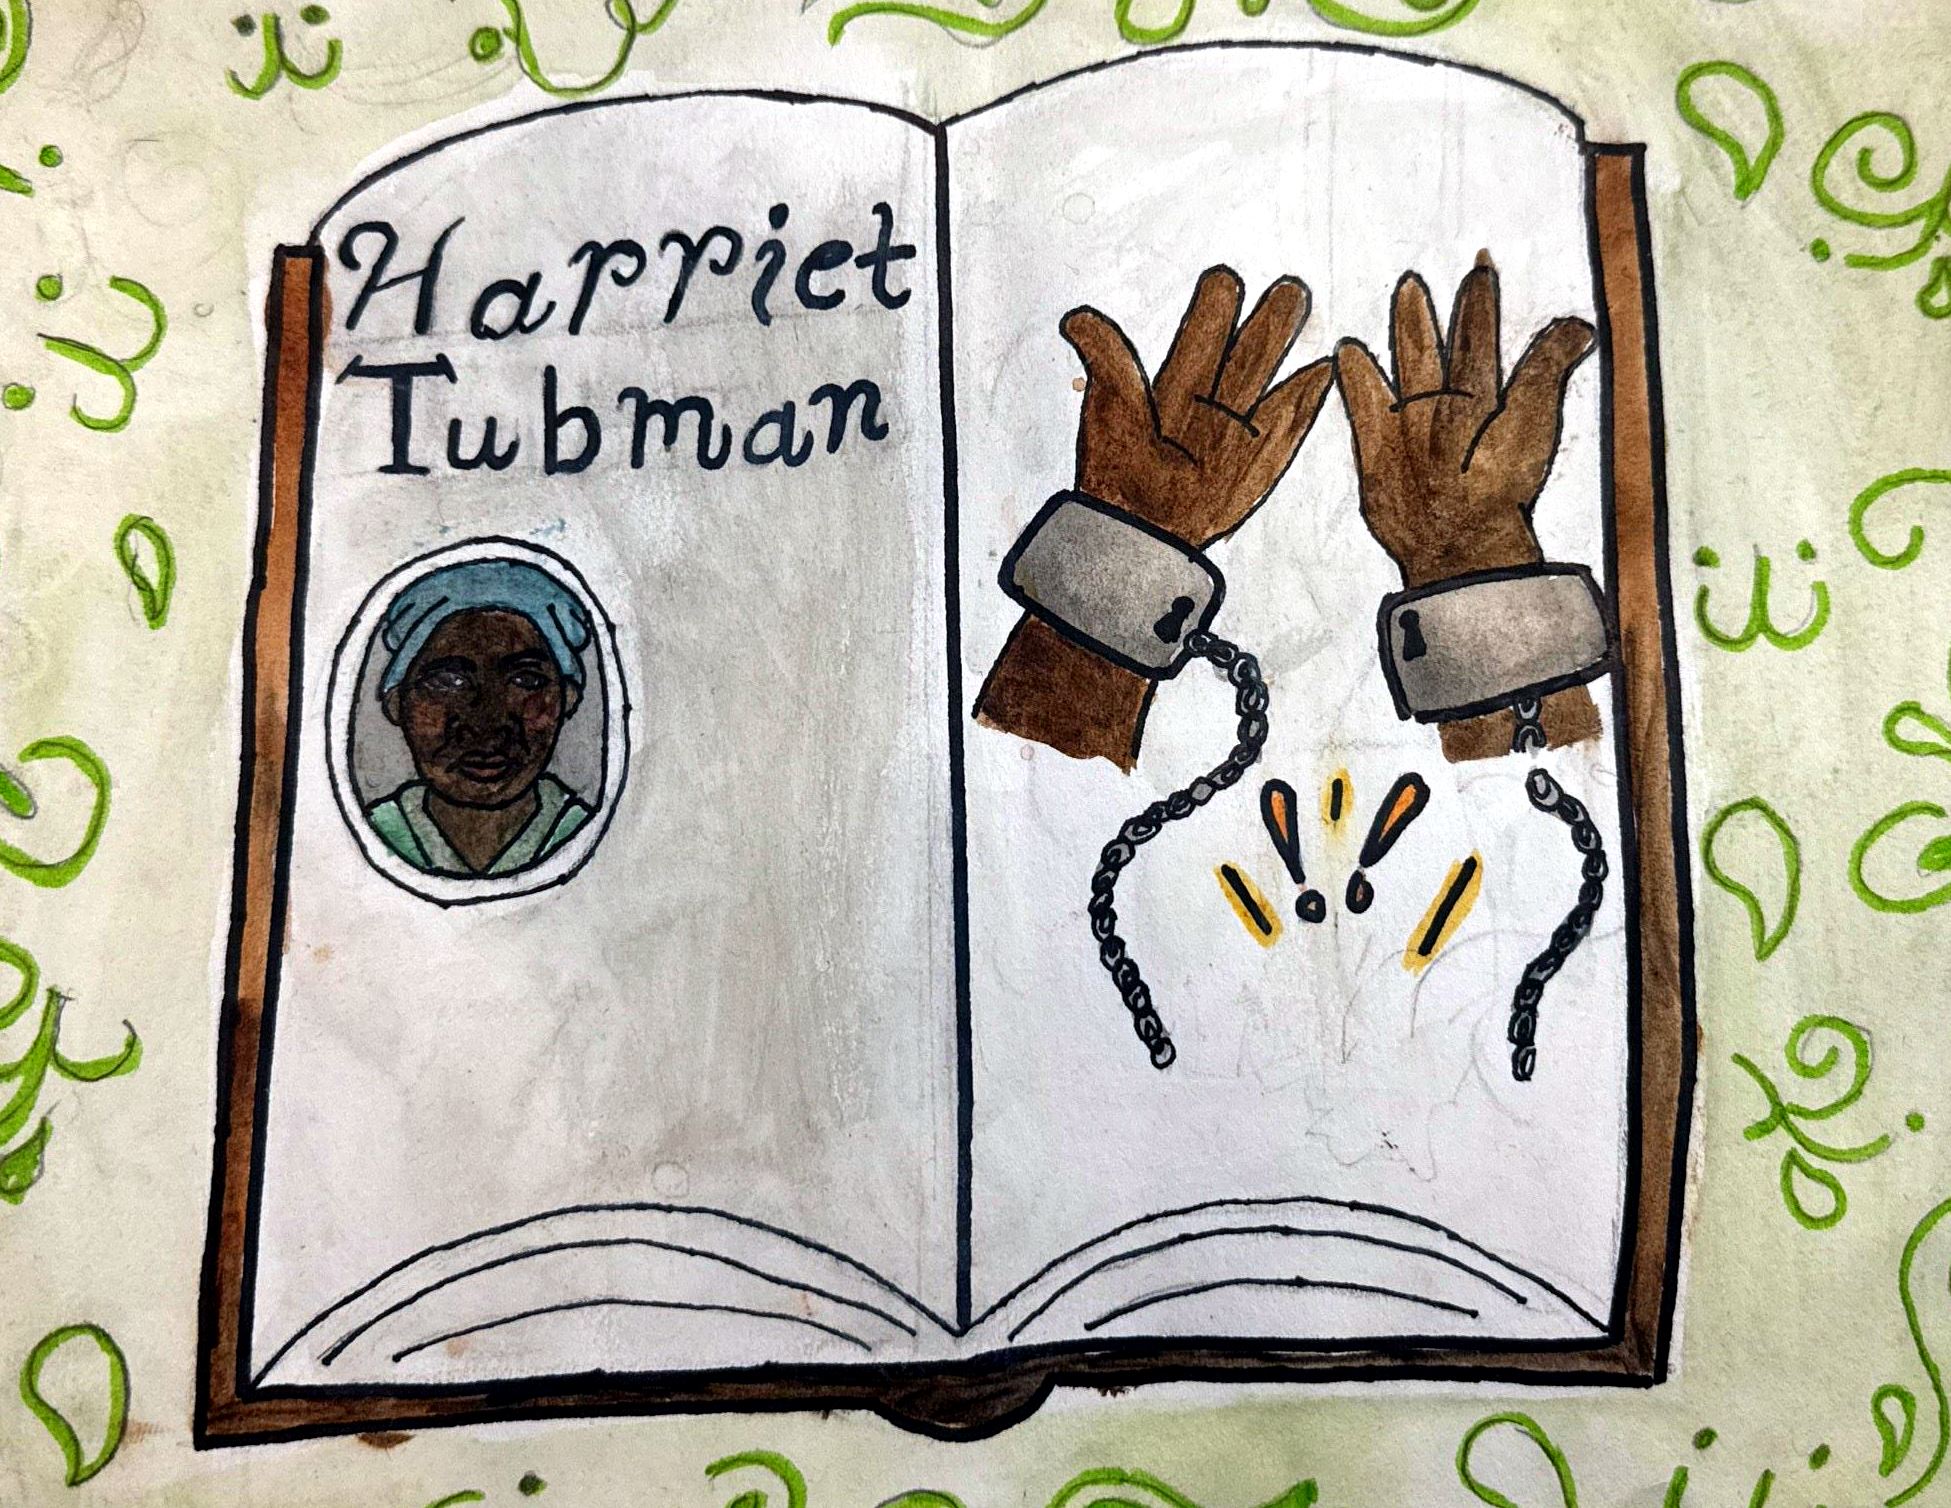 Harriet
Tubman